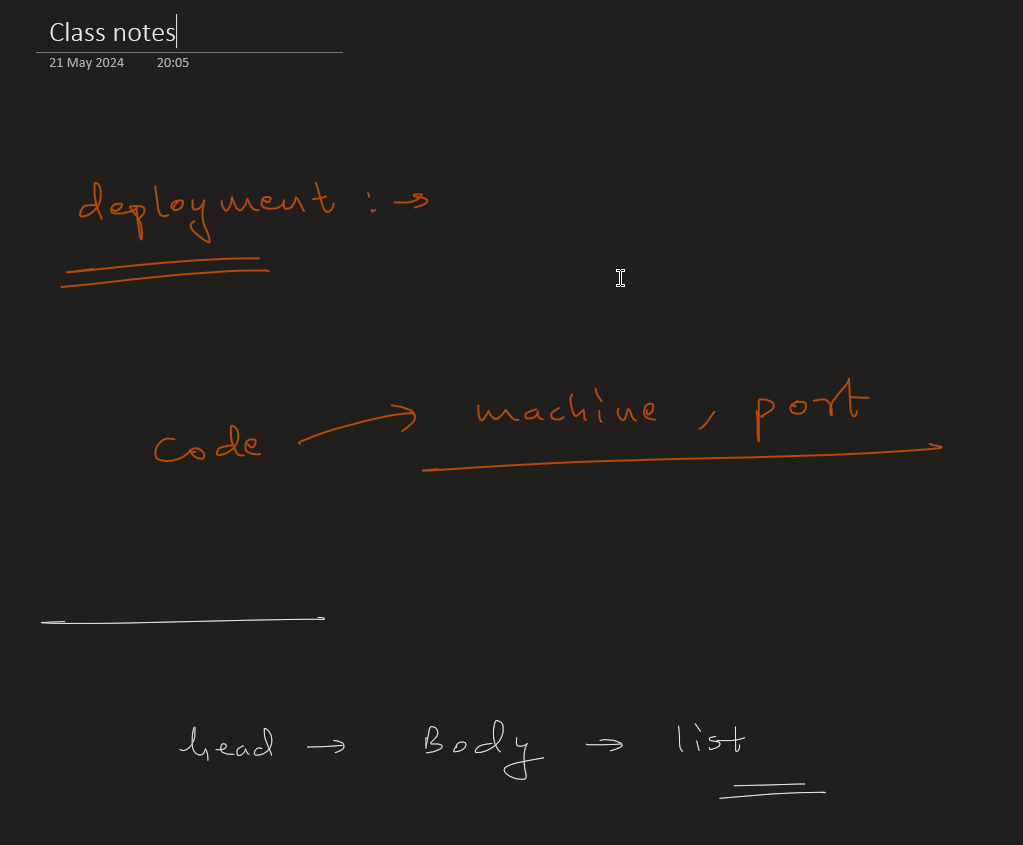 Class notes
21 May 2024 20:05
deployment : →
code → machine , port
head → Body → list